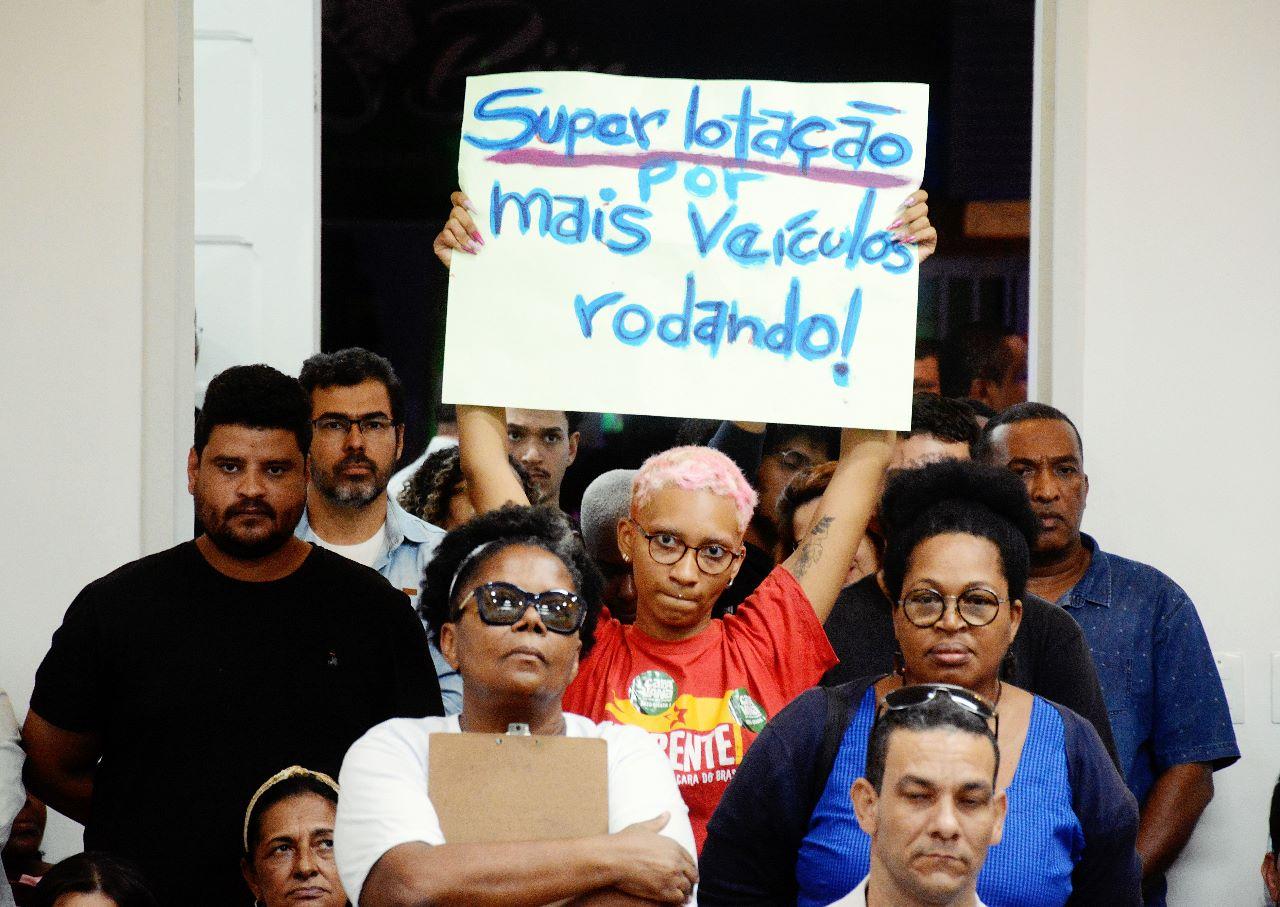 Super lotação
por
mais veículos
rodando!
RENTE!
CARA DO BRAS